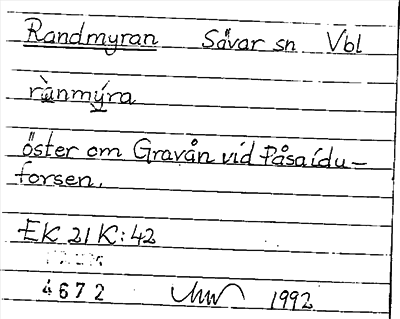 Randmyran Sävar sn Vbl
rànmýra
öster om Gravån vid Påsaidu-
forsen.
EK 21 K:42
4672 1992